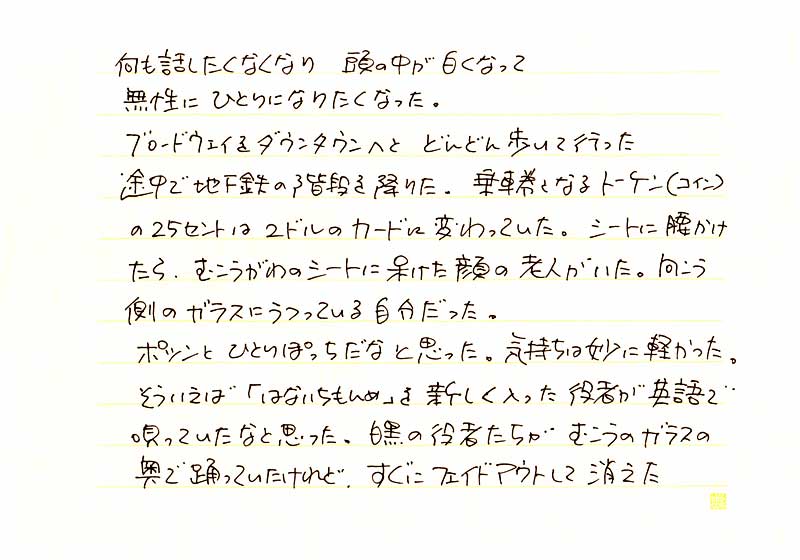 何も話したくなくなり 頭の中が白くなって
無性にひとりになりたくなった。
ブロードウェイをダウンタウンへと どんどん歩いて行った
途中で地下鉄の階段を降りた。乗車券となるトークン(コイン)
の25セントは2ドルのカードに変わっていた。シートに腰かけ
たら、むこうがわのシートに呆けた顔の老人がいた。向こう
側のガラスにうつっている自分だった。
ポツンとひとりぼっちだなと思った。気持ちは妙に軽かった。
そういえば「はないちもんめ」を新しく入った役者が英語で
唄っていたなと思った。白黒の役者たちがむこうのガラスの
奥で踊っていたけれど、すぐにフェイドアウトして消えた